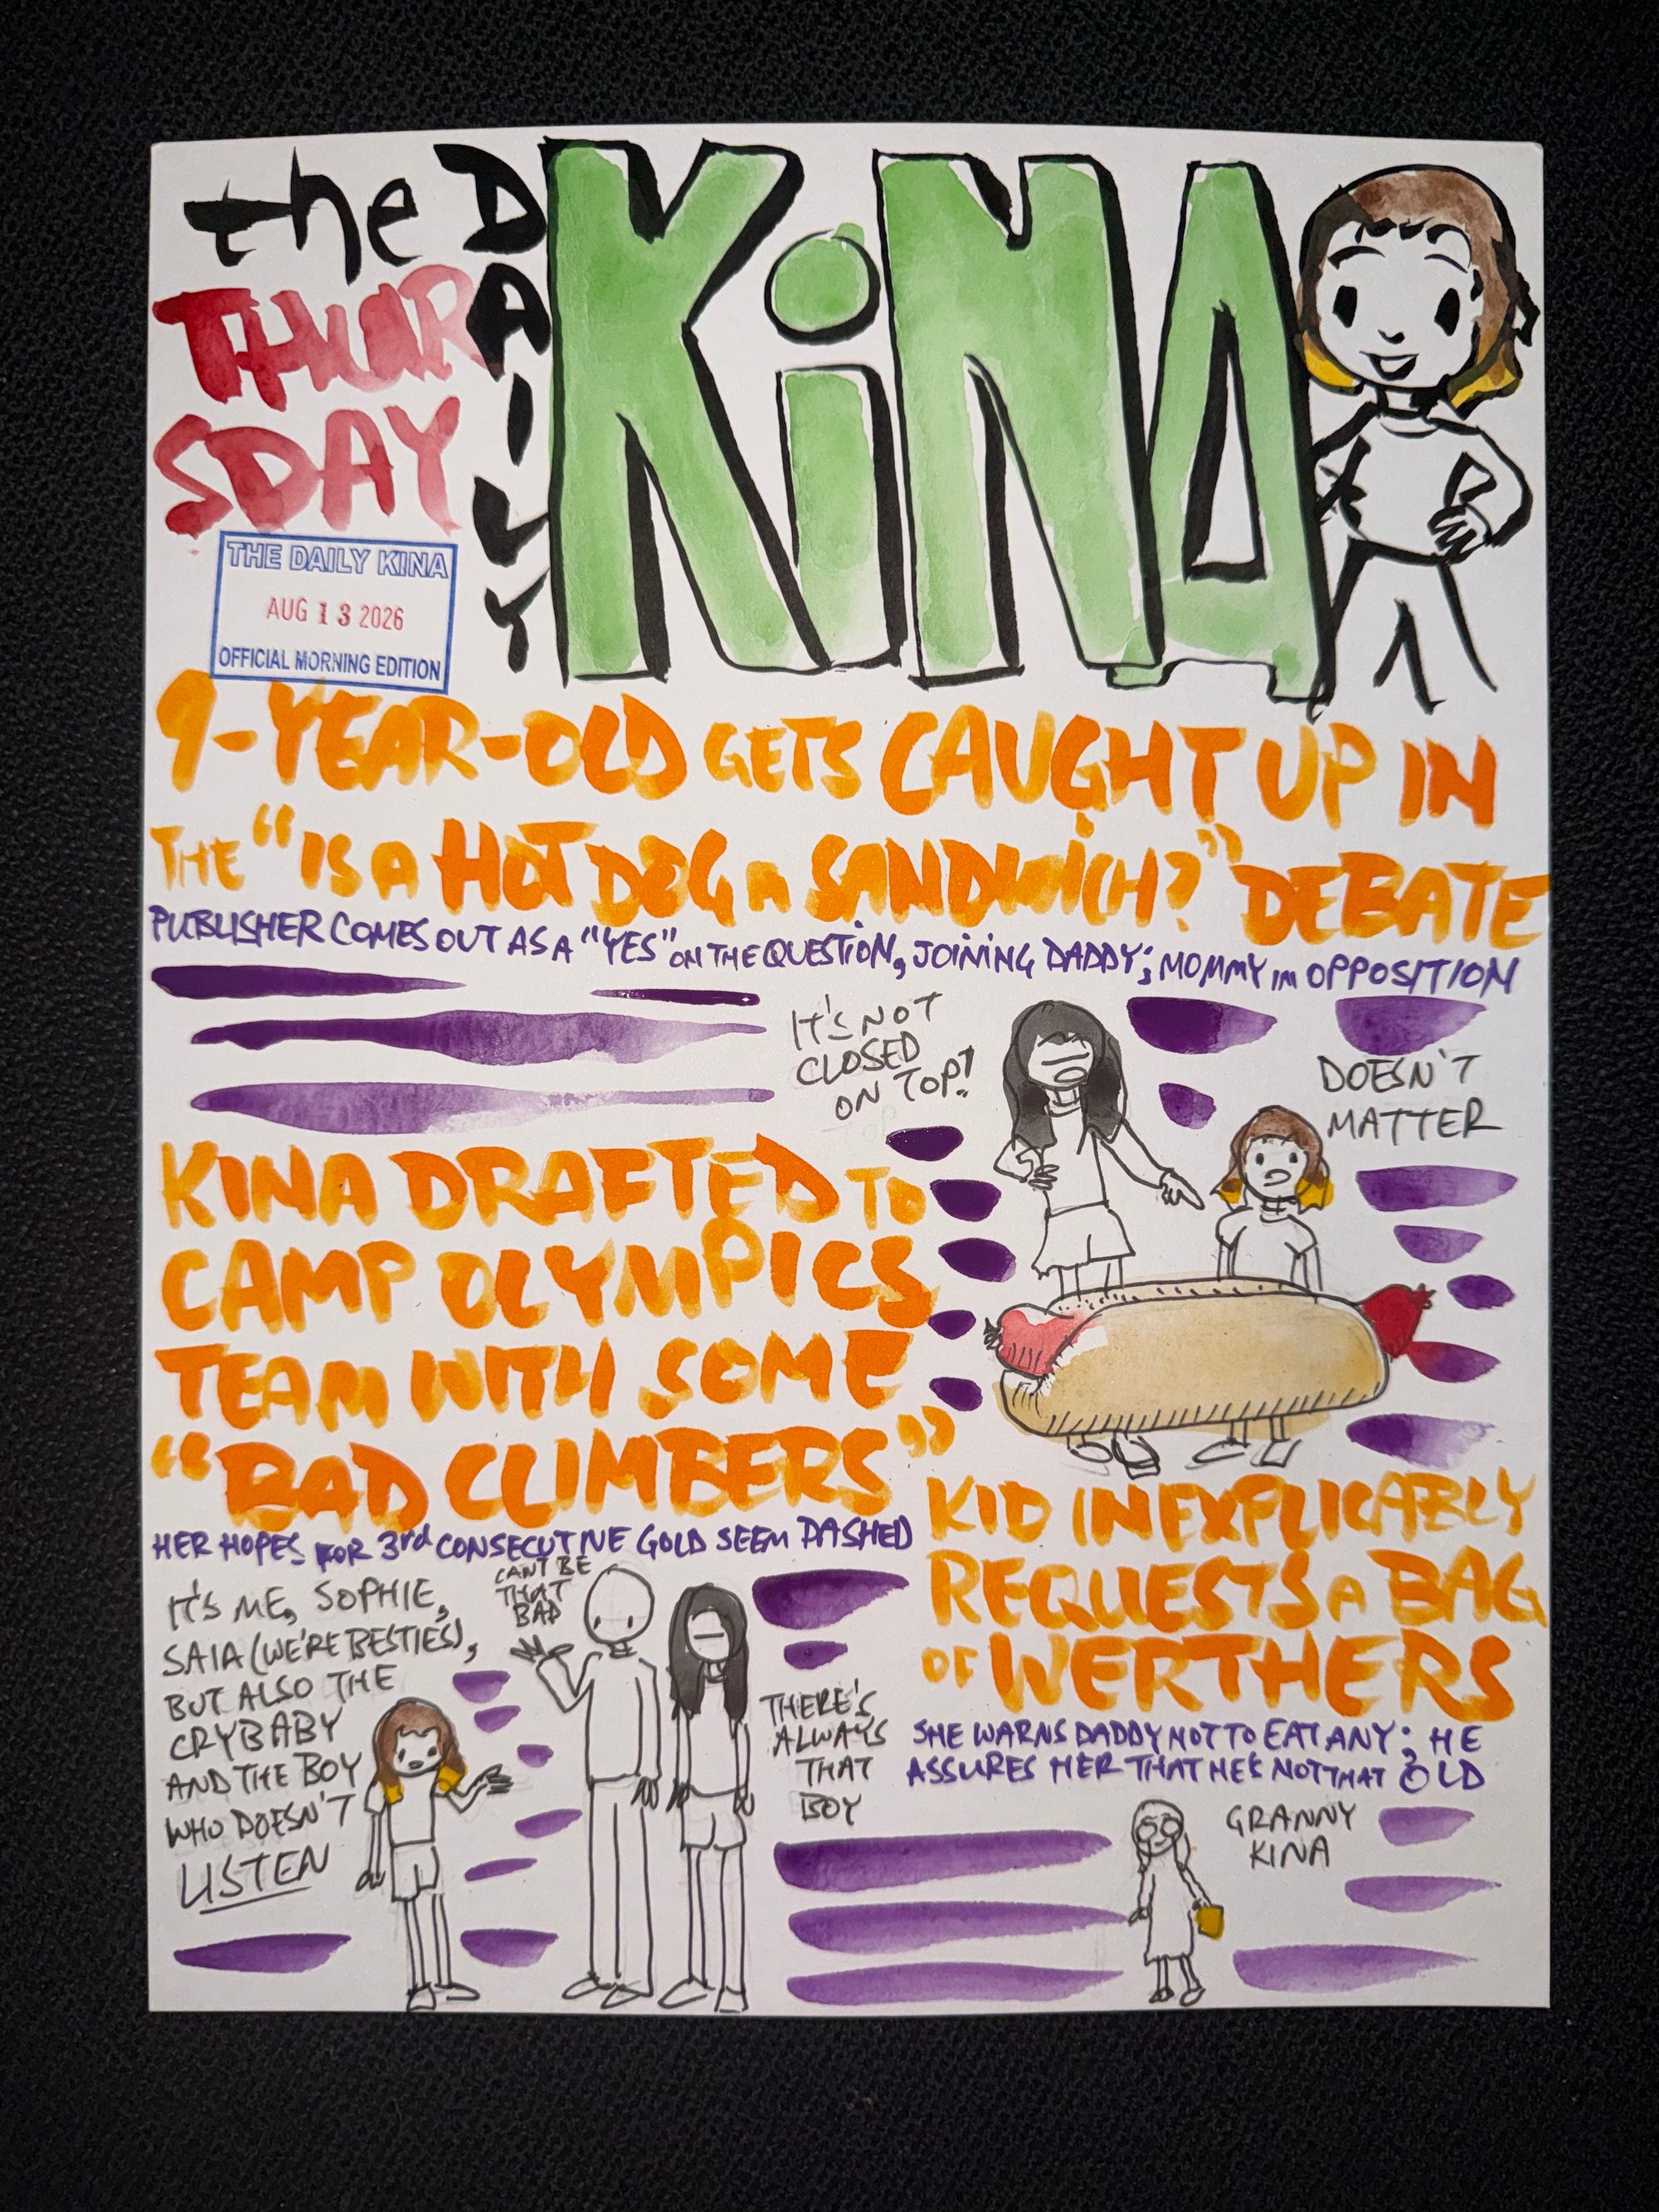 the DAILY KiNA
THUR
SDAY
THE DAILY KINA
AUG 13 2026
OFFICIAL MORNING EDITION
9-YEAR-OLD GETS CAUGHT UP IN
THE "IS A HOT DOG A SANDWICH?" DEBATE
PUBLISHER COMES OUT AS A "YES" ON THE QUESTION, JOINING DADDY; MOMMY IN OPPOSITION
IT'S NOT
CLOSED
ON TOP!
DOESN'T
MATTER
KINA DRAFTED TO
CAMP OLYMPICS
TEAM WITH SOME
"BAD CLIMBERS"
HER HOPES FOR 3rd CONSECUTIVE GOLD SEEM DASHED
IT'S ME, SOPHIE,
SAIA (WE'RE BESTIES),
BUT ALSO THE
CRYBABY
AND THE BOY
WHO DOESN'T
LISTEN
CAN'T BE
THAT
BAD
THERE'S
ALWAYS
THAT
BOY
KID INEXPLICABLY
REQUESTS A BAG
OF WERTHERS
SHE WARNS DADDY NOT TO EAT ANY; HE
ASSURES HER THAT HE'S NOT THAT OLD
GRANNY
KINA